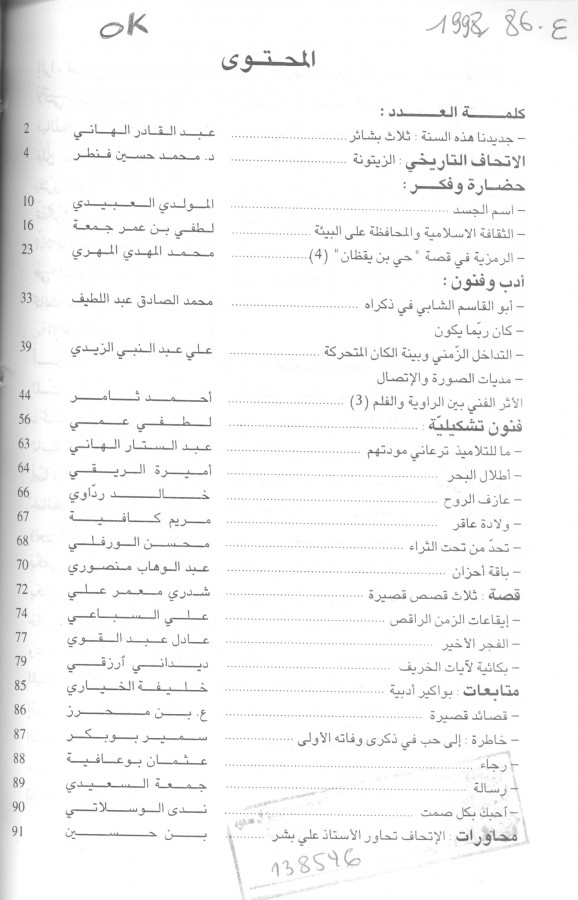 OK
1998 86.ع
المحتوى
كلمة العدد :
– جديدنا هذه السنة : ثلاث بشائر عبد القادر الهاني 2
الاتحاف التاريخي : الزيتونة د. محمد حسين فنطر 4
حضارة وفكر :
– اسم الجسد المولدي العبيدي 10
– الثقافة الاسلامية والمحافظة على البيئة لطفي بن عمر جمعة 16
– الرمزية في قصة "حي بن يقظان" (4) محمد المهدي المهري 23
أدب وفنون :
– أبو القاسم الشابي في ذكراه محمد الصادق عبد اللطيف 33
– كان ربّما يكون
– التداخل الزّمني وبينة الكان المتحركة علي عبد النبي الزيدي 39
– مديات الصورة والإتصال
الاثر الفني بين الراوية والفلم (3) أحمد ثامر 44
فنون تشكيليّة : لطفي عمي 56
– ما للتلاميذ ترعاني مودتهم عبد الستار الهاني 63
– أطلال البحر أميرة الريقي 64
– عازف الروح خالد ردّاوي 66
– ولادة عاقر مريم كافية 67
– تحدّ من تحت الثراء محسن الورفلي 68
– باقة أحزان عبد الوهاب منصوري 70
قصة : ثلاث قصص قصيرة شدري معمر علي 72
– إيقاعات الزمن الراقص علي السباعي 74
– الفجر الأخير عادل عبد القوي 77
– بكائية لآيات الخريف ديداني آرزقي 79
متابعات : بواكير أدبية خليفة الخياري 85
– قصائد قصيرة ع. بن محرز 86
– خاطرة : إلى حب في ذكرى وفاته الأولى سمير بوبكر 87
– رجاء عثمان بوعافية 88
– رسالة جمعة السعيدي 89
– أحبك بكل صمت ندى الوسلاتي 90
محاورات : الإتحاف تحاور الأستاذ علي بشر بن حسين 91
138546